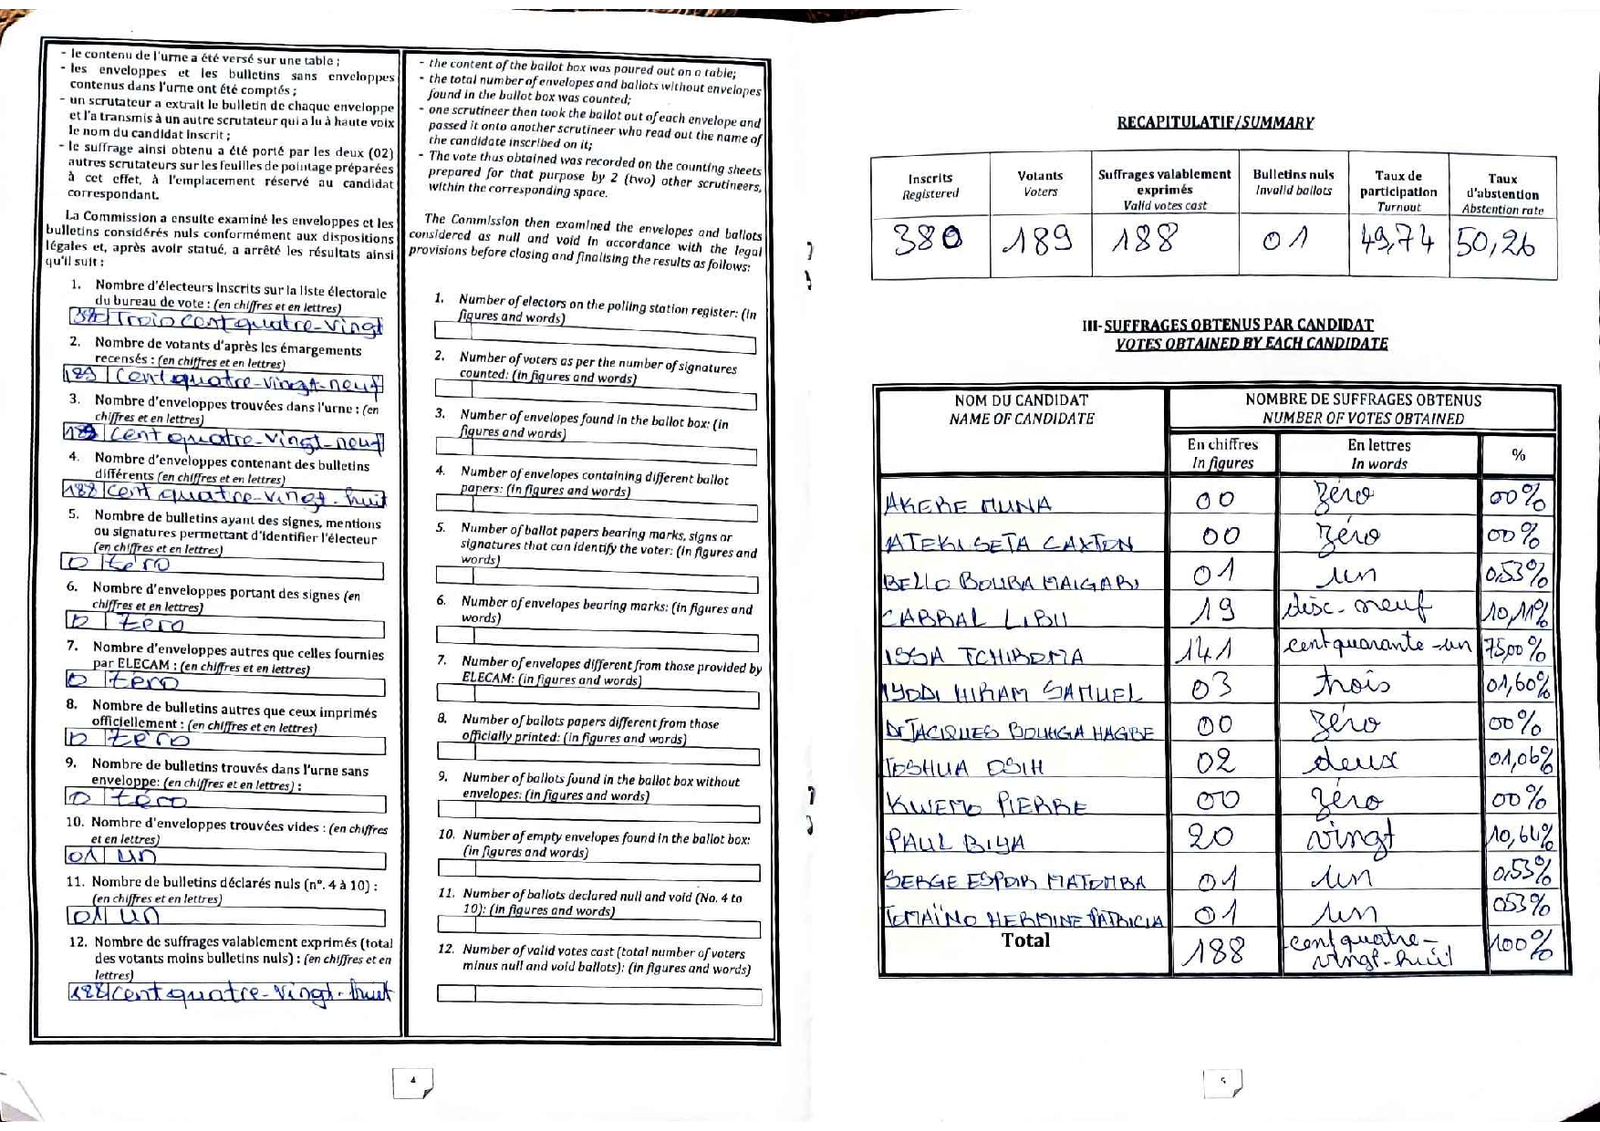 - le contenu de l'urne a été versé sur une table ;
- les enveloppes et les bulletins sans enveloppes
contenus dans l'urne ont été comptés ;
- un scrutateur a extrait le bulletin de chaque enveloppe
et l'a transmis à un autre scrutateur qui a lu à haute voix
le nom du candidat inscrit ;
- le suffrage ainsi obtenu a été porté par les deux (02)
autres scrutateurs sur les feuilles de pointage préparées
à cet effet, à l'emplacement réservé au candidat
correspondant.
La Commission a ensuite examiné les enveloppes et les
bulletins considérés nuls conformément aux dispositions
légales et, après avoir statué, a arrêté les résultats ainsi
qu'il suit :
1. Nombre d'électeurs inscrits sur la liste électorale
du bureau de vote : (en chiffres et en lettres)
380 Trois cent quatre-vingt
2. Nombre de votants d'après les émargements
recensés : (en chiffres et en lettres)
189 Cent quatre-vingt-neuf
3. Nombre d'enveloppes trouvées dans l'urne : (en
chiffres et en lettres)
189 Cent quatre-vingt-neuf
4. Nombre d'enveloppes contenant des bulletins
différents (en chiffres et en lettres)
188 Cent quatre-vingt-huit
5. Nombre de bulletins ayant des signes, mentions
ou signatures permettant d'identifier l'électeur
(en chiffres et en lettres)
0 zéro
6. Nombre d'enveloppes portant des signes (en
chiffres et en lettres)
0 zéro
7. Nombre d'enveloppes autres que celles fournies
par ELECAM : (en chiffres et en lettres)
0 zéro
8. Nombre de bulletins autres que ceux imprimés
officiellement : (en chiffres et en lettres)
0 zéro
9. Nombre de bulletins trouvés dans l'urne sans
enveloppe: (en chiffres et en lettres) :
0 zéro
10. Nombre d'enveloppes trouvées vides : (en chiffres
et en lettres)
01 un
11. Nombre de bulletins déclarés nuls (n°. 4 à 10) :
(en chiffres et en lettres)
01 un
12. Nombre de suffrages valablement exprimés (total
des votants moins bulletins nuls) : (en chiffres et en
lettres)
188 Cent quatre-vingt-huit
- the content of the ballot box was poured out on a table;
- the total number of envelopes and ballots without envelopes
found in the ballot box was counted;
- one scrutineer then took the ballot out of each envelope and
passed it onto another scrutineer who read out the name of
the candidate inscribed on it;
- The vote thus obtained was recorded on the counting sheets
prepared for that purpose by 2 (two) other scrutineers,
within the corresponding space.
The Commission then examined the envelopes and ballots
considered as null and void in accordance with the legal
provisions before closing and finalising the results as follows:
1. Number of electors on the polling station register: (in
figures and words)
2. Number of voters as per the number of signatures
counted: (in figures and words)
3. Number of envelopes found in the ballot box: (in
figures and words)
4. Number of envelopes containing different ballot
papers: (in figures and words)
5. Number of ballot papers bearing marks, signs or
signatures that can identify the voter: (in figures and
words)
6. Number of envelopes bearing marks: (in figures and
words)
7. Number of envelopes different from those provided by
ELECAM: (in figures and words)
8. Number of ballots papers different from those
officially printed: (in figures and words)
9. Number of ballots found in the ballot box without
envelopes: (in figures and words)
10. Number of empty envelopes found in the ballot box:
(in figures and words)
11. Number of ballots declared null and void (No. 4 to
10): (in figures and words)
12. Number of valid votes cast (total number of voters
minus null and void ballots): (in figures and words)
4
RECAPITULATIF/SUMMARY
Inscrits Registered
Votants Voters
Suffrages valablement exprimés Valid votes cast
Bulletins nuls Invalid ballots
Taux de participation Turnout
Taux d'abstention Abstention rate
380 189 188 01 49,74 50,26
III- SUFFRAGES OBTENUS PAR CANDIDAT
VOTES OBTAINED BY EACH CANDIDATE
NOM DU CANDIDAT NOMBRE DE SUFFRAGES OBTENUS
NAME OF CANDIDATE NUMBER OF VOTES OBTAINED
En chiffres En lettres %
In figures In words
AKERE MUNA 00 zéro 00%
ATEKI SETA CAXTON 00 zéro 00%
BELLO BOUBA MAIGARI 01 un 0,53%
CABRAL LIBII 19 disc-neuf 10,11%
ISSA TCHIROMA 141 cent quarante-un 75,00%
IYODI HIRAM SAMUEL 03 trois 01,60%
Dr JACQUES BOUHGA HAGBE 00 zéro 00%
JOSHUA OSIH 02 deux 01,06%
KWEMO PIERRE 00 zéro 00%
PAUL BIYA 20 vingt 10,64%
SERGE ESPOIR MATOMBA 01 un 0,53%
TOMAÏNO HERMINE PATRICIA 01 un 053%
Total 188 cent quatre-vingt-huit 100%
5